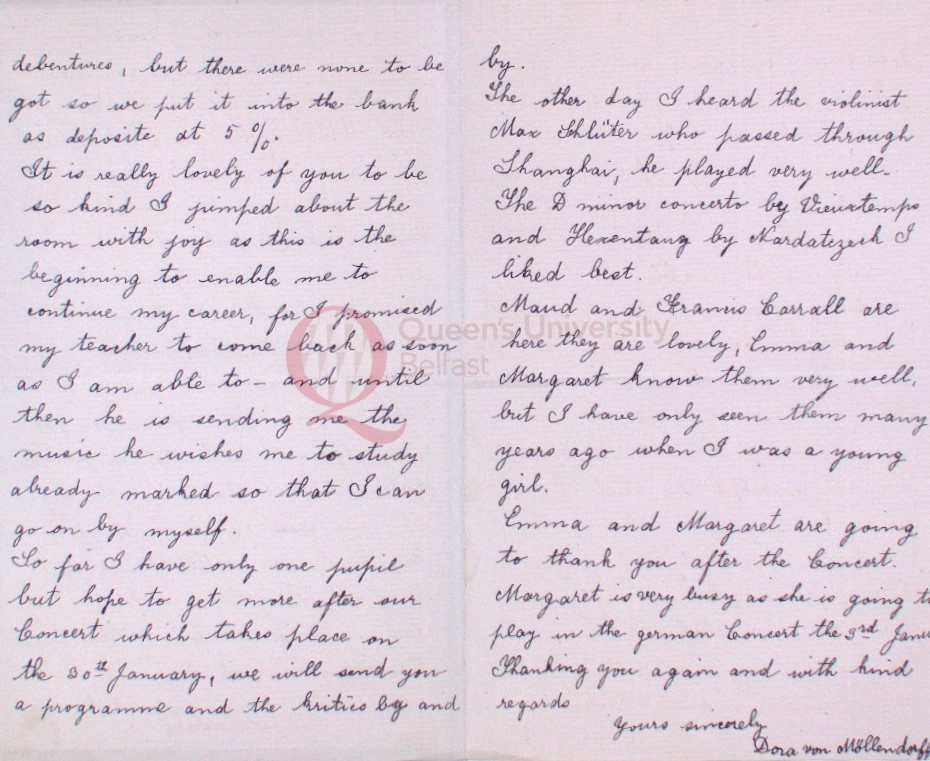 debentures, but there were none to be
got so we put it into the bank
as deposite at 5 %.
It is really lovely of you to be
so kind I jumped about the
room with joy as this is the
beginning to enable me to
continue my career, for I promised
my teacher to come back as soon
as I am able to – and until
then he is sending me the
music he wishes me to study
already marked so that I can
go on by myself.
So far I have only one pupil
but hope to get more after our
Concert which takes place on
the 30th January, we will send you
a programme and the kritics by and
by.
The other day I heard the violinist
Max Schlüter who passed through
Shanghai, he played very well.
The D minor concerto by Vieuxtemps
and Hexentanz by I
liked best.
Maud and Francis Carrall are
here they are lovely, Emma and
Margaret know them very well,
but I have only seen them many
years ago when I was a young
girl.
Emma and Margaret are going
to thank you after the Concert.
Margaret is very busy as she is going to
play in the german Concert the 3rd Janu
Thanking you again and with kind
regards
Yours sincerely
Dora von Möllendorff
Queen's University
Belfast